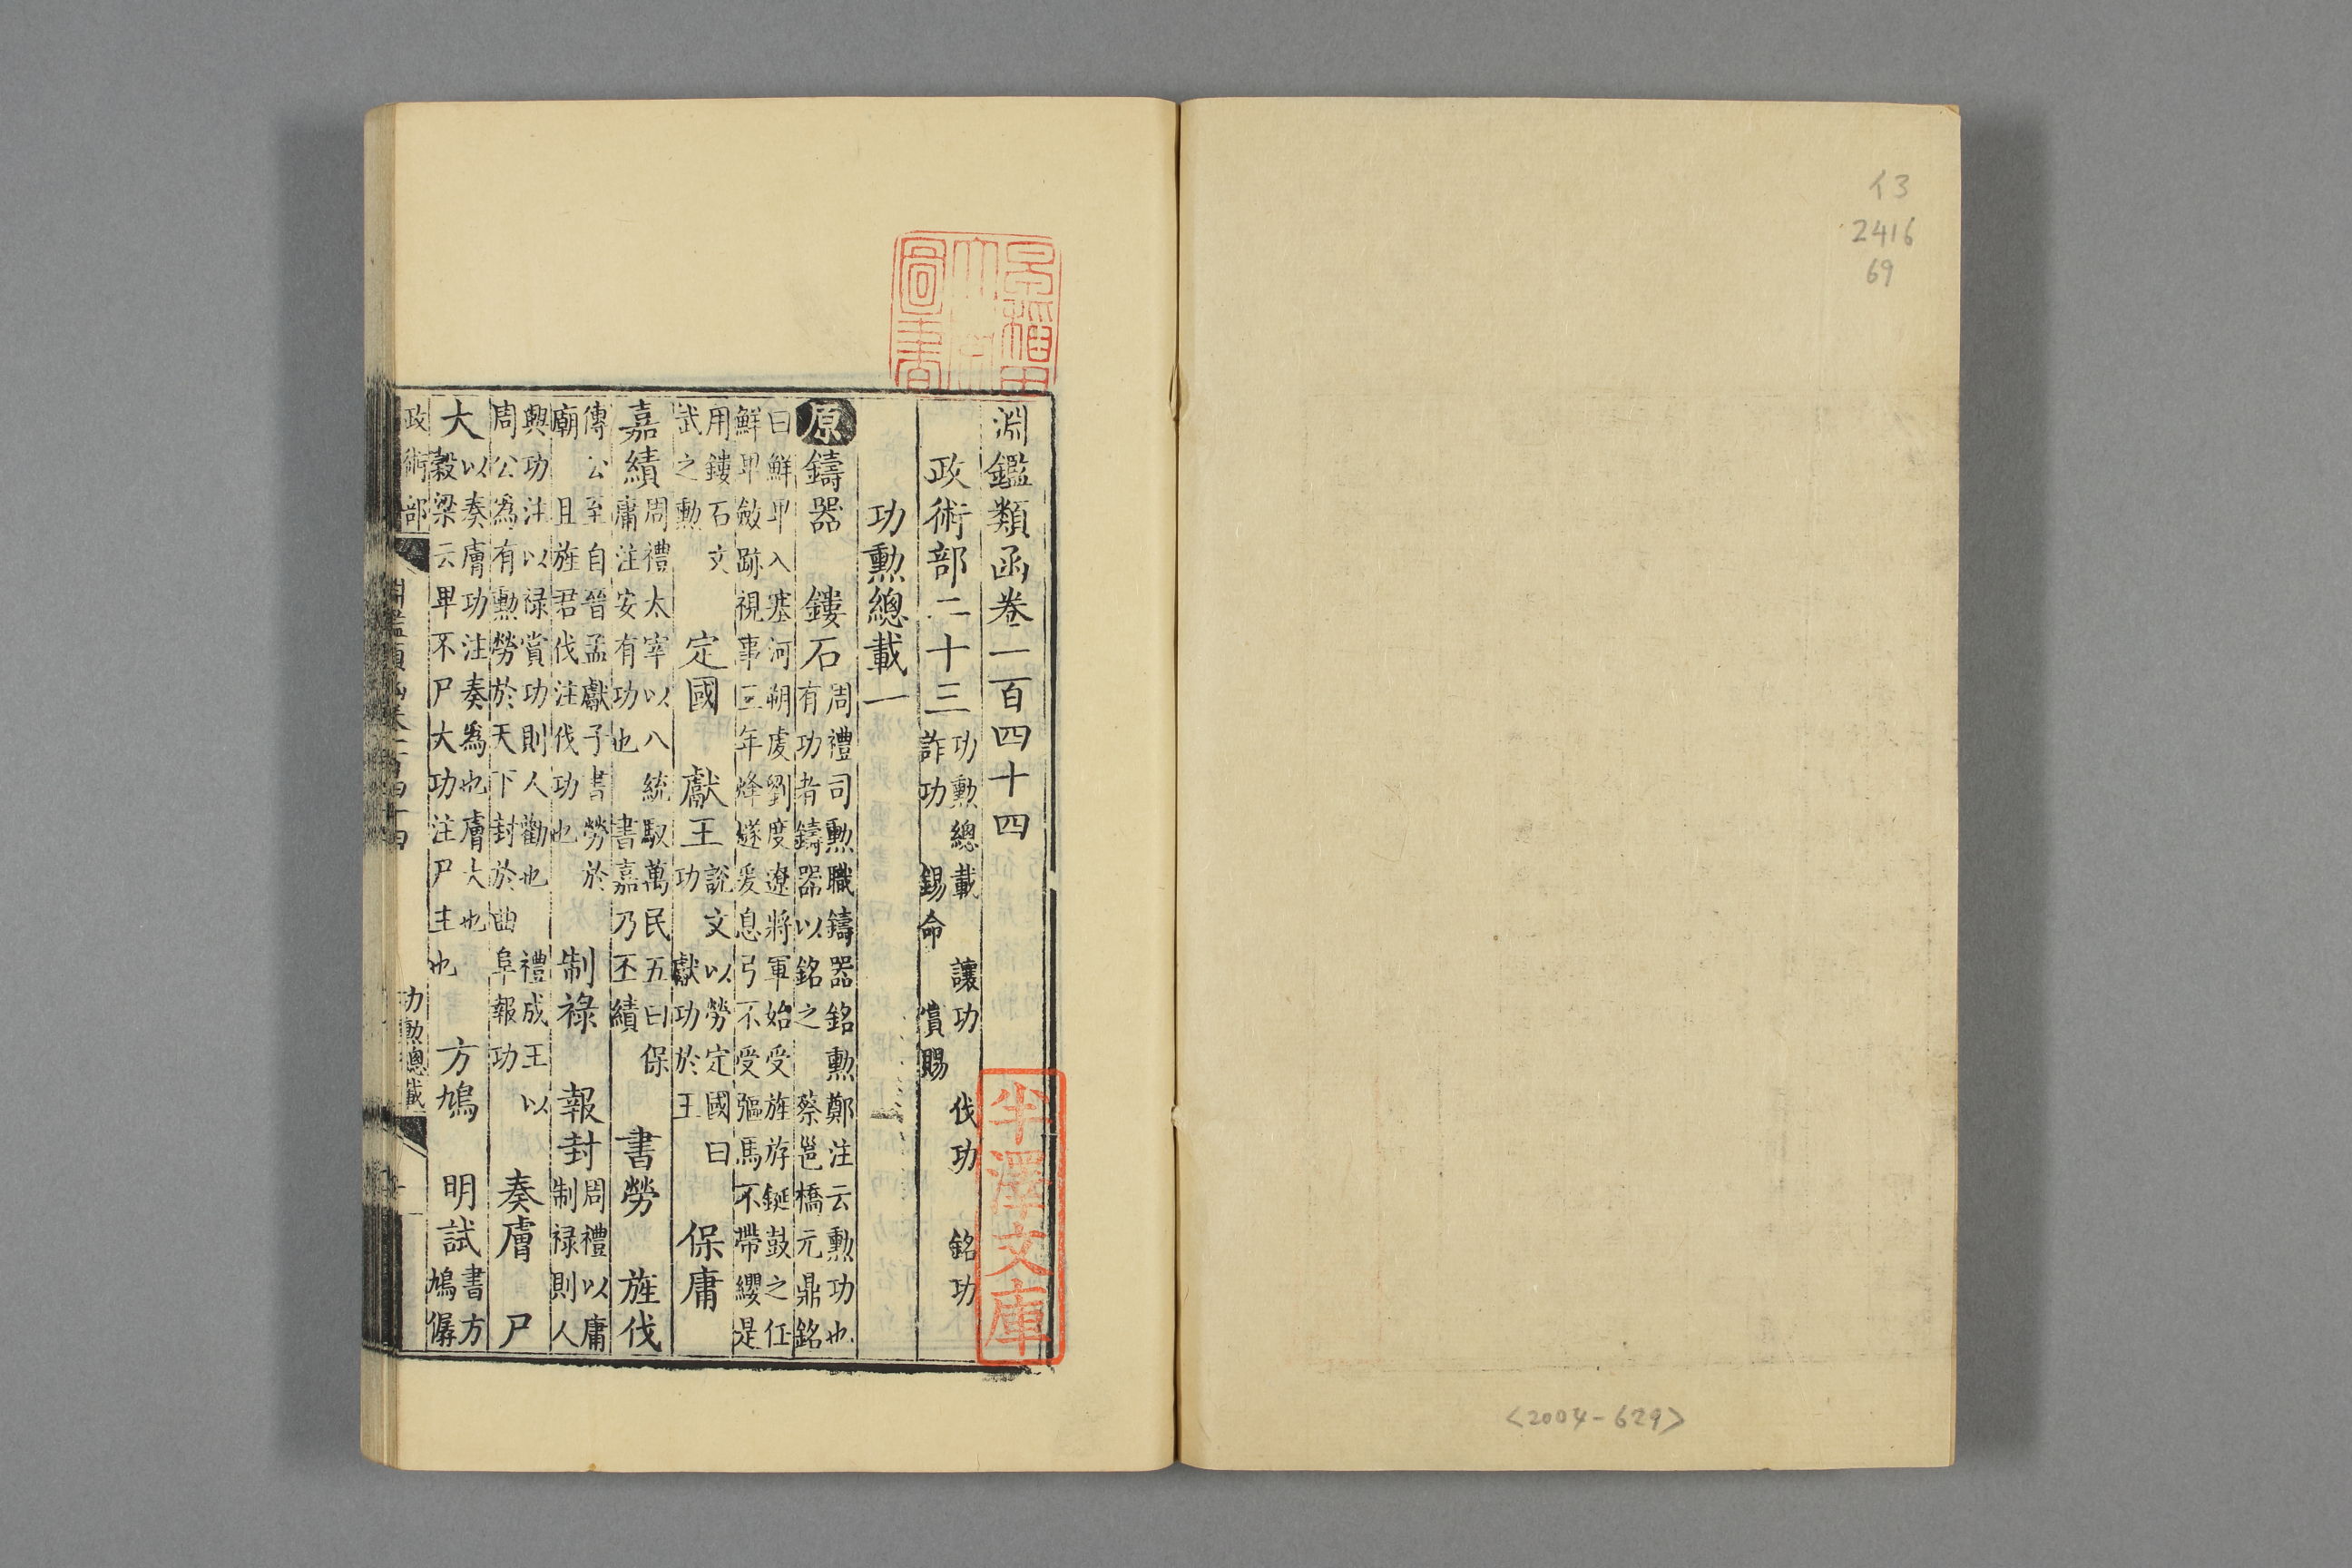 イ3
2416
69
<2004-629>
早稲田
大學
圖書
淵鑑類函卷一百四十四
政術部二十三
功勳總載 讓功 伐功 銘功
詐功 錫命 賞賜
功勳總載一
原鑄器 鏤石
周禮司勳職鑄器銘勳鄭注云勳功也
有功者鑄器以銘之 蔡邕橋元鼎銘
曰鮮卑入塞河朔虔劉度遼將軍始受旌斿鉦鼓之任
鮮卑斂跡視事三年烽燧爰息弓不受彄馬不帶纓是
用鏤石文
武之勳
定國 獻王功
說文以勞定國曰
功 獻功於王
保庸
嘉績
周禮太宰以八統馭萬民五曰保
庸注安有功也 書嘉乃丕績
書勞 旌伐
傳公至自晉孟獻子書勞於
廟 且旌君伐注伐功也
制祿 報封
周禮以庸
制祿則人
興功注以祿賞功則人勸也 禮成王以
周公為有勳勞於天下封於曲阜報功
奏膚 尸
大
以奏膚功注奏為也膚大也
穀梁云畢不尸大功注尸主也
方鳩 明試
書方
鳩僝
政術部
淵鑑類函卷一百四十四
功勳總載
一
半澤文庫